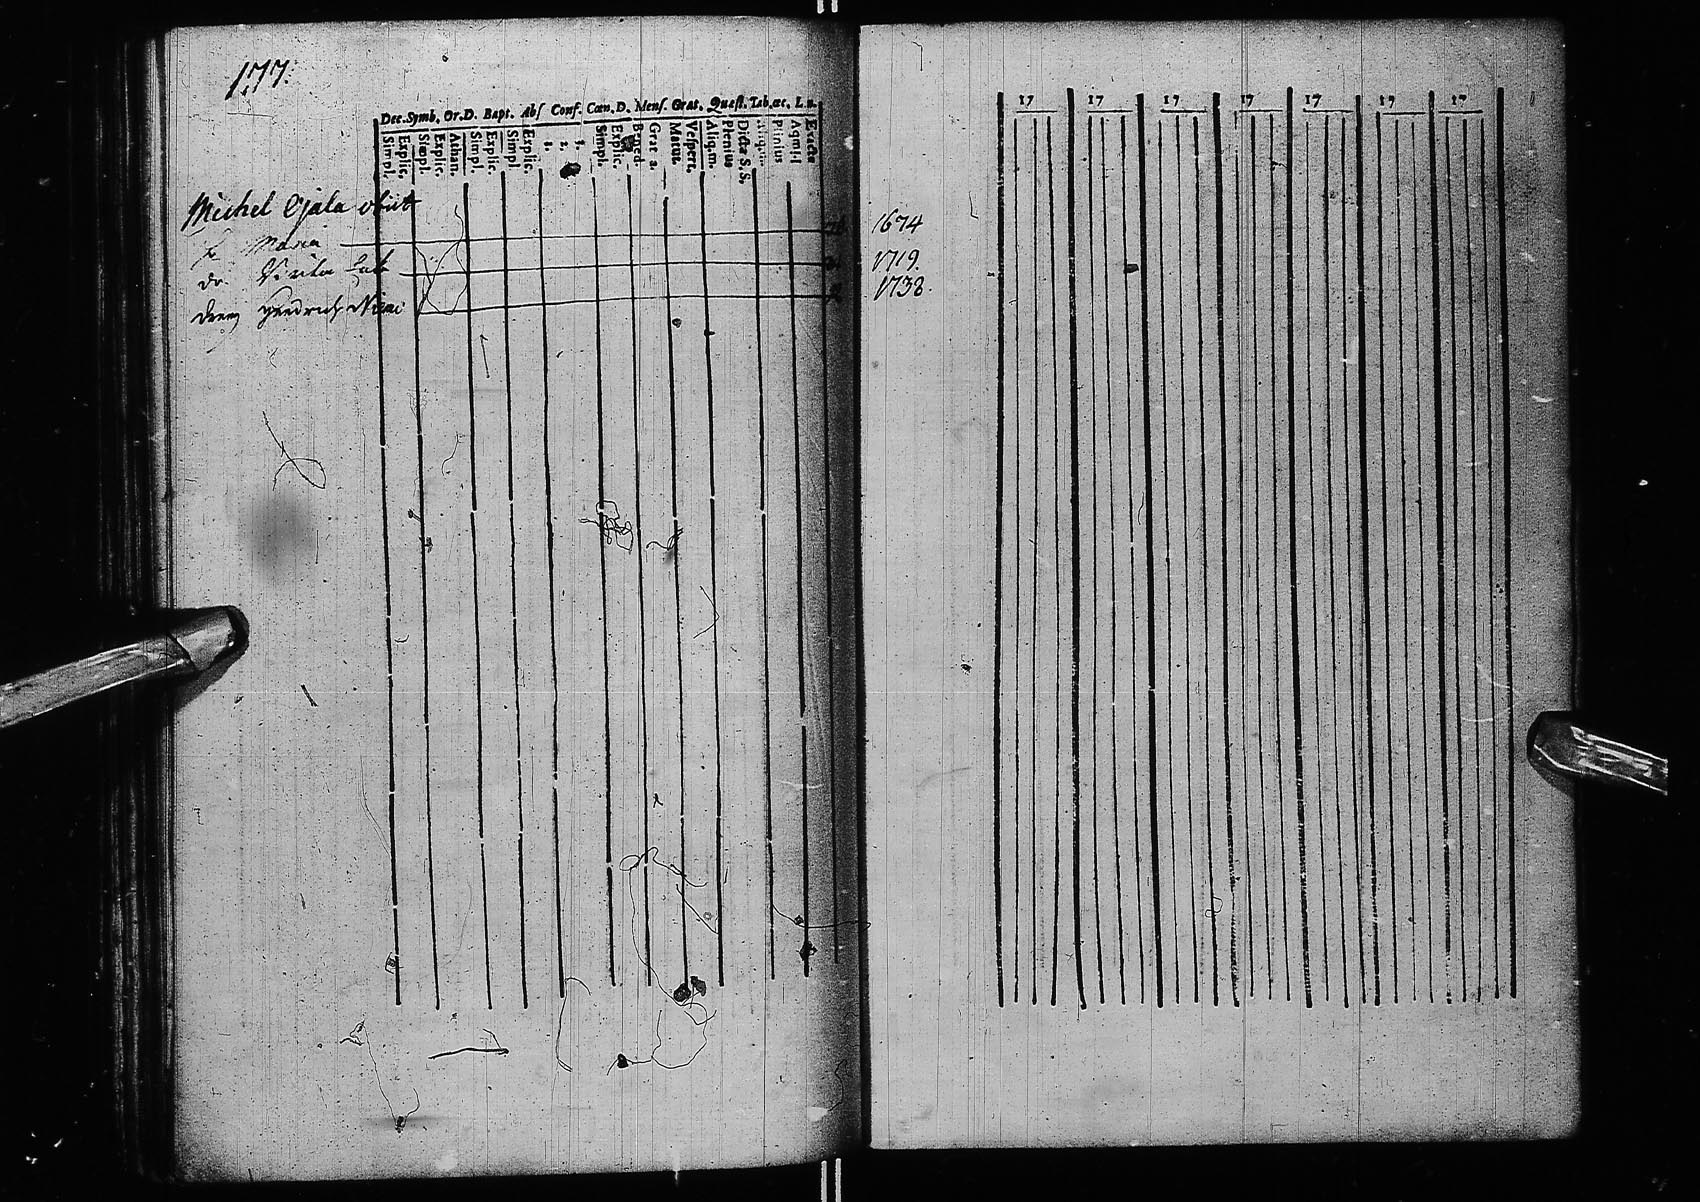 177.
Dec. Symb. Or.D. Bapt. Abſ Conf. Cœn.D. Menſ. Grat. Queſt. Tab.œc. L.n.
Simpl.
Explic.
Simpl.
Explic.
Athan.
Simpl.
Explic.
Simpl
Explic.
1.
2.
3.
Simpl.
Explic.
Bened.
Grat a.
Matut.
Veſpert.
Aliq.m.
Plenius
Dicta S.S.
Plinius
Exacte
Michel Ojala obiit
h. Maria 1674
dr. 1719.
1738.
17 17 17 17 17 17 17